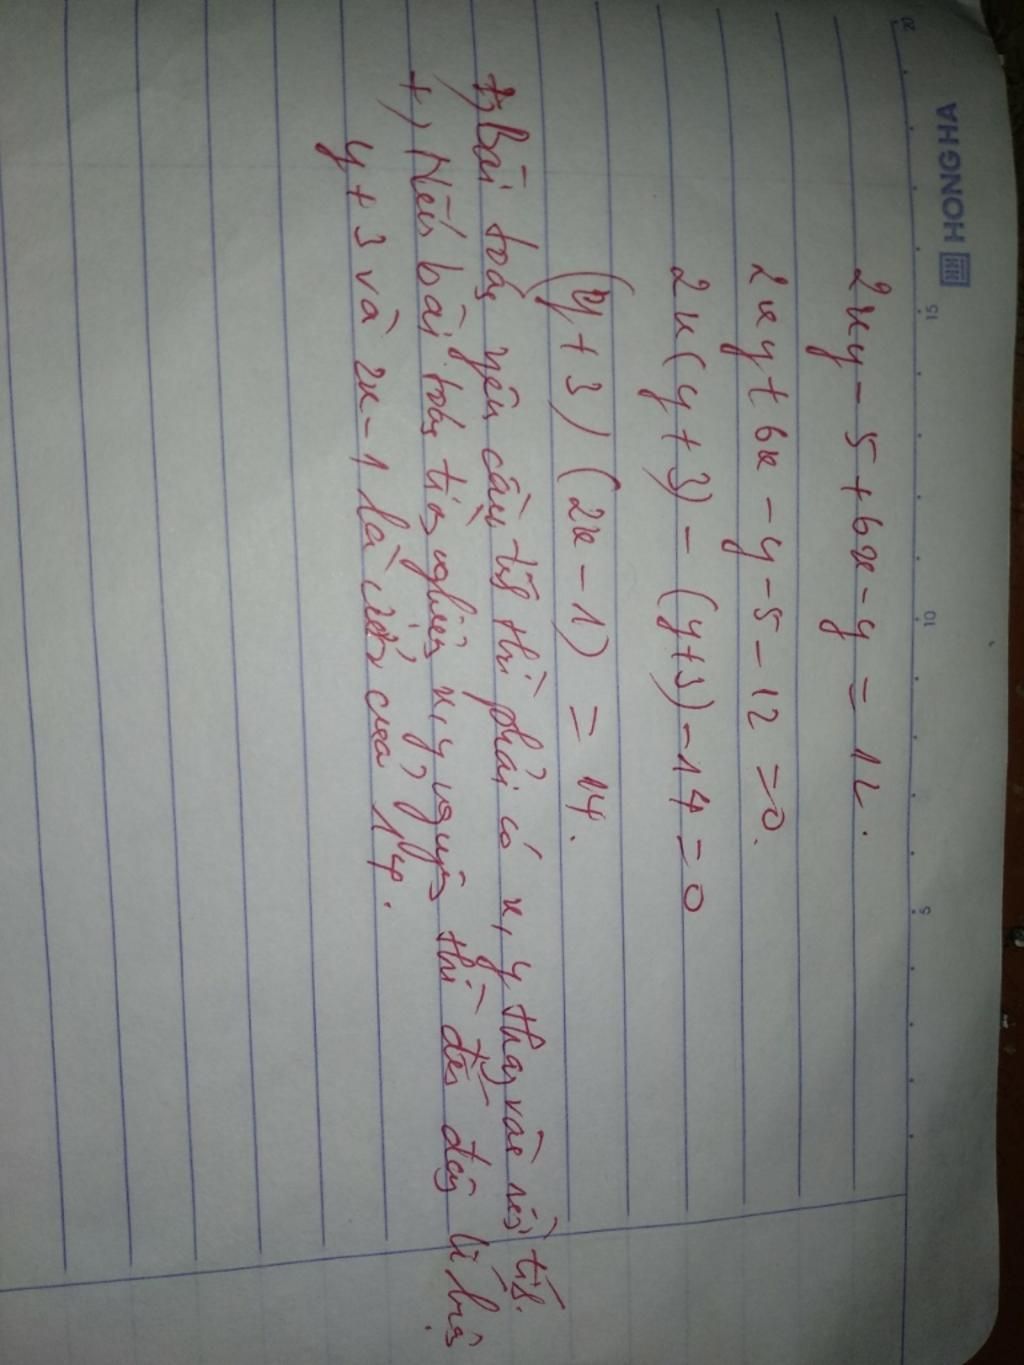 20 15 10 5
HONG HA
2xy - 5 + 6x - y = 12.
2xy + 6x - y - 5 - 12 = 0.
2x(y+3) - (y+3) - 14 = 0
(y+3)(2x-1) = 14.
+) Bài toán yêu cầu tính thì phải có x, y thay vào rồi tính.
+) Nếu bài toán tìm nghiệm x, y nguyên thì từ đến đây lí luận
y+3 và 2x-1 là ước của 14.